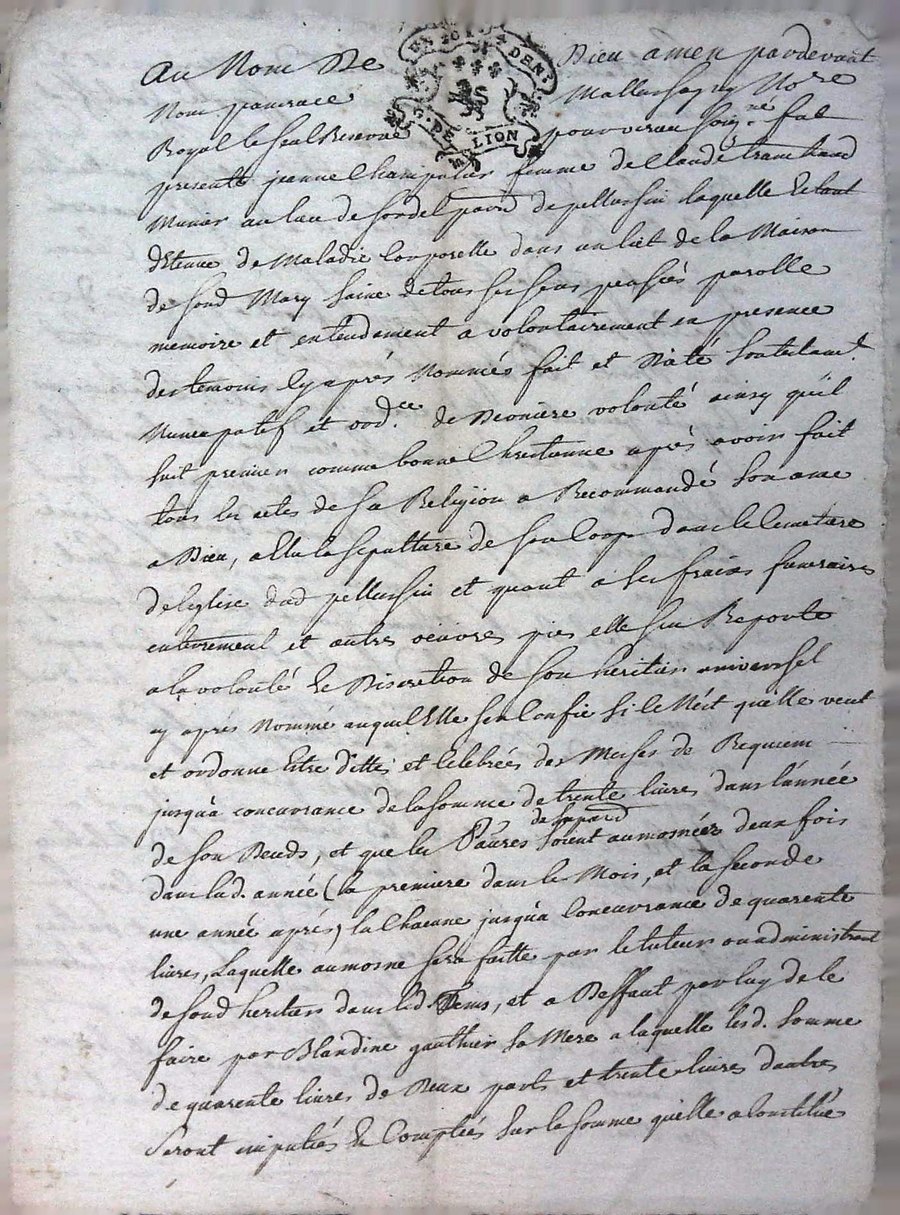 UN SOL 4 DEN.
G. DE LION
Au Nom De Dieu amen pardevant
Nous pancrace Mallassagny No.re
Royal le seul Reservé pour virieu soug.né fut
presente jeanne Champalier femme de Claude tranchand
Munier au lieu de sordet parr.e de pellussin laquelle Etant
dEtenue de Maladie Corporelle dans un lict de la Maison
de sond Mary saine de tous ses sens pensées parolle
memoire et entendement a volontairement en presence
des temoins Cy après Nommés fait et Dicté son testam.t
Nuncupatif et ord.ce de Derniere volonté ainsy quil
suit premier comme bonne Chretienne après avoir fait
tous les actes de Sa Religion a Recommandé Son ame
a Dieu, a Elu la sepulture de son Corps dans le Cemetiere
de leglise dud pellussin et quant a ses fraix funeraires
enterrement et autres oeuvres pies elle sen Raporte
a la volonté Et Discretion de Son heritier universel
cy après Nommé auquel Elle sen Confie si ce Nest quelle veut
et ordonne Estre dittes et Celebrées des Messes de Requiem
jusqua concurrance de la somme de trente livres dans lannée
de Son Deceds, et que les Pauvres soient aumosnées deux fois
dans lad. année (la premiere dans le Mois, et la seconde
une année après) la Chacune jusqua Concurrance de quarente
livres, Laquelle aumosne sera faitte par le tuteur ou administrant
de sond heritier dans led. Tems, et a Deffaut par luy de le
faire par Blandine gauthier sa Mere a laquelle lesd. somme
de quarente livres de Deux parts et trente livres dautres
Seront imputées Et Comptées Sur la somme quelle a Constitué